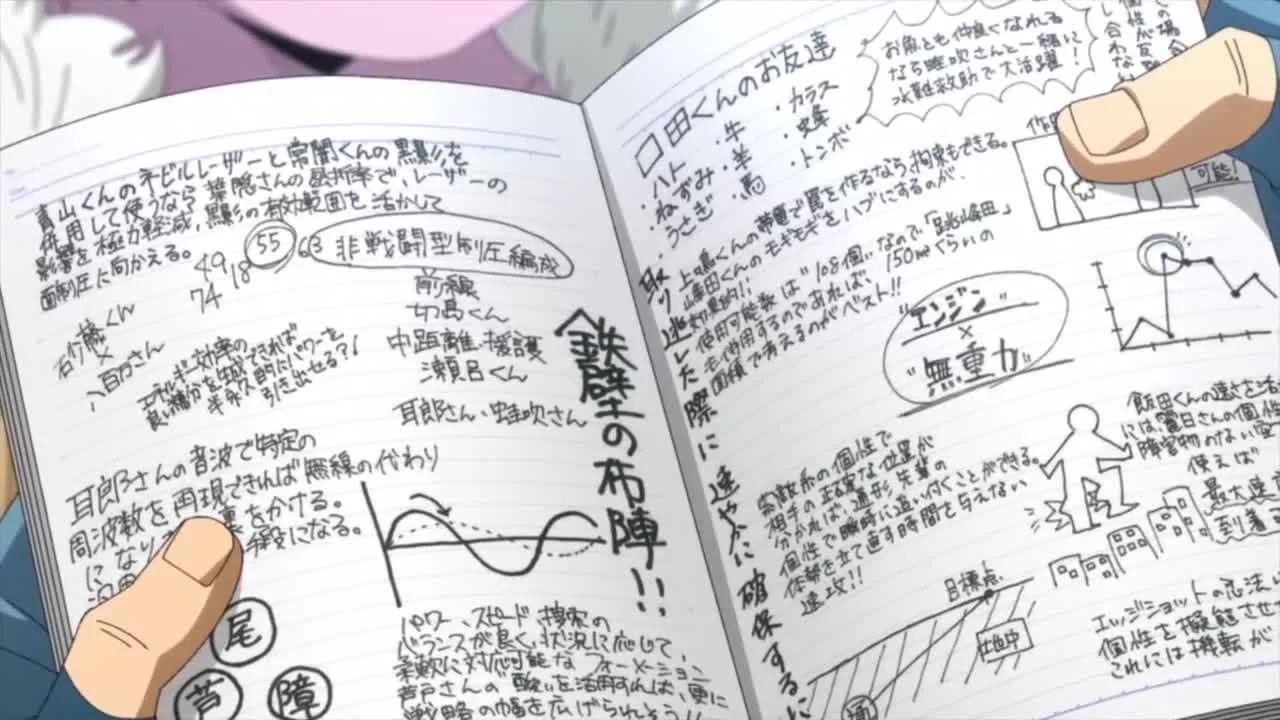 青山くんのネビルレーザーと常闇くんの黒影を
併用して使うなら葉隠さんの屈折率で、レーザーの
影響を極力軽減、黒影の有効範囲を活かして
面制圧に向かえる。
49 18 55 63
74
非戦闘型制圧編成
前線
切島くん
中距離・援護
瀬呂くん
耳郎さん・蛙吹さん
砂藤くん
×
八百万さん
エネルギー効率の
良い糖分を生成できれば
半永久的にパワーを
引き出せる?!
鉄壁の布陣!!
耳郎さんの音波で特定の
周波数を再現できれば無線の代わり
になり
をかける。
になる。
尾
芦
障
パワー、スピード、捜索の
バランスが良く、状況に応じて、
柔軟に対応可能なフォーメーション
芦戸さんの酸を活用すれば、更に
戦略の幅を広げられそう!!
口田くんのお友達
・ハト
・ねずみ
・うさぎ
・牛
・羊
・馬
・カラス
・蜂
・トンボ
お魚とも仲良くなれる
なら蛙吹さんと一緒に
水難救助で大活躍!
可能!
上鳴くんの帯電で罠を作るなら、拘束もできる。
峰田くんのモギモギをハブにするのが、
効果的!!
使用可能数は"108個"なので
も使用するのであれば、150m²ぐらいの
面積で考えるのがベスト!!
取り逃した際に速やかに確保するに
"エンジン"
×
"無重力"
飯田くんの速さを活
には麗日さんの個性
障害物のない空
使えば
最大速
到着
索敵系の個性で
相手の正確な位置が
分かれば、通形先輩の
個性で瞬時に追い付くことができる。
体勢を立て直す時間を与えない
速攻!!
目標点
エッジショットの忍法
個性を擬態させ
これには機転が